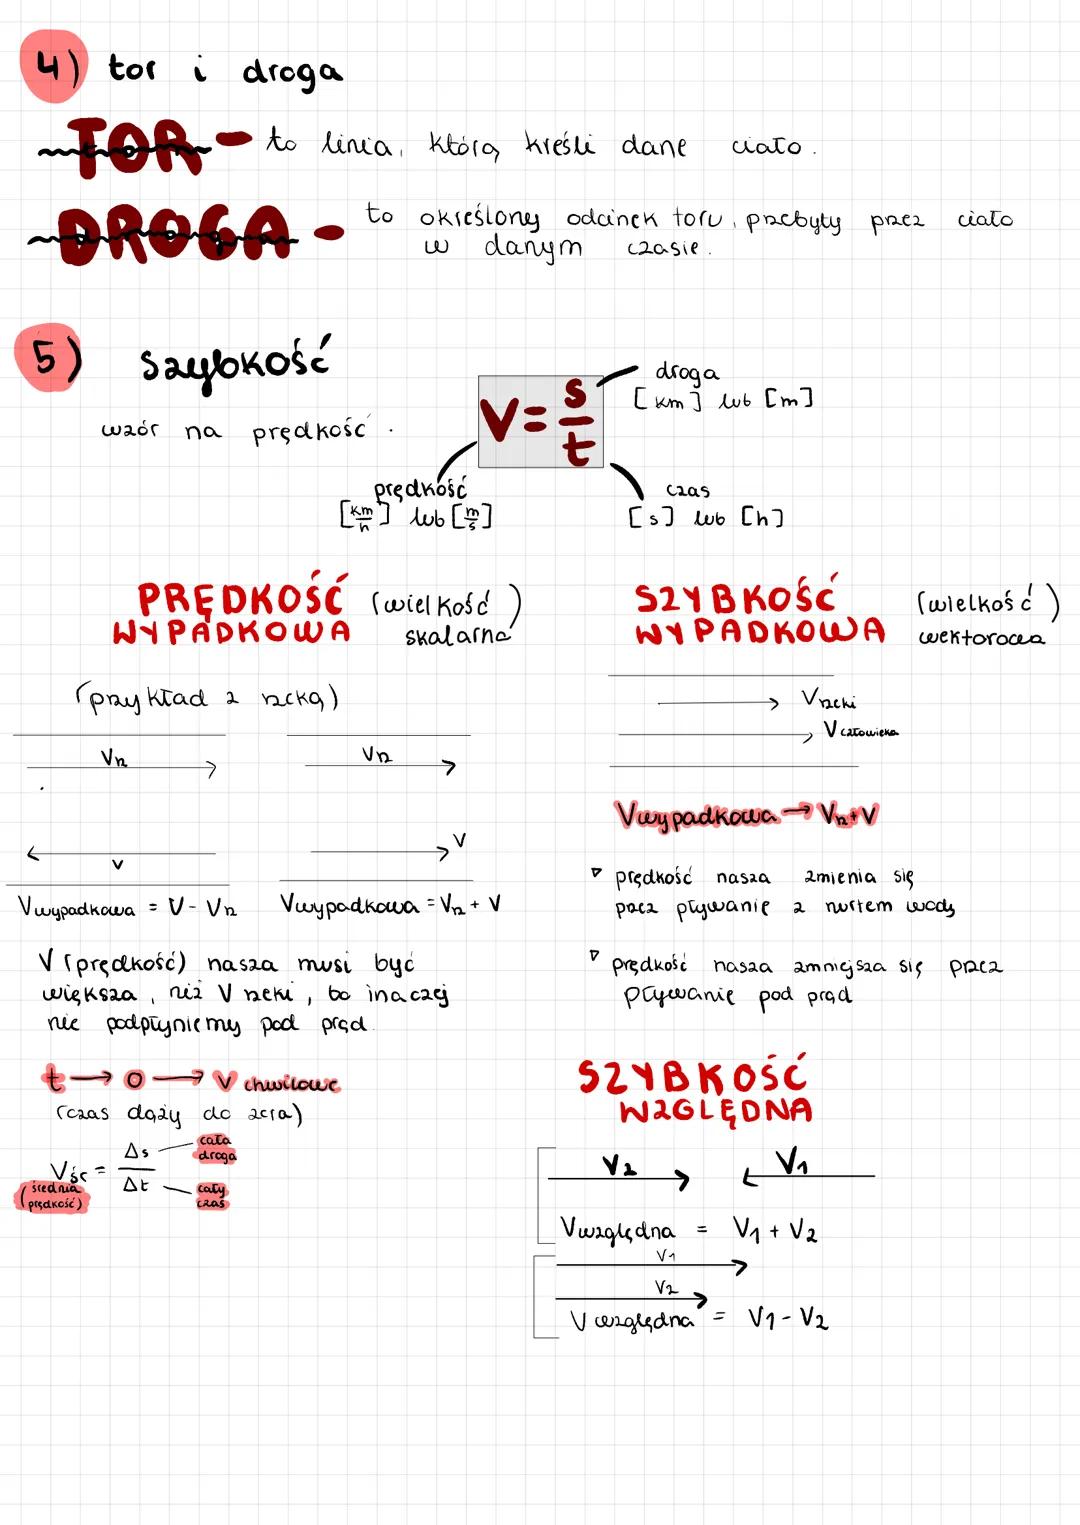 4) tor i droga
TOR - to linia, którą kreśli dane ciało.
DROGA - to określony odcinek toru, przebyty przez ciało
w danym czasie.
5) szybkość
wzór na prędkość.
V = s/t
droga
[km] lub [m]
prędkość
[km/h] lub [m/s]
czas
[s] lub [h]
PRĘDKOŚĆ
WYPADKOWA
(wielkość skalarna)
(przykład z rzeką)
Vrz
Vrz
V
V
Vwypadkowa = V - Vrz
Vwypadkowa = Vrz + V
V (prędkość) nasza musi być
większa, niż V rzeki, bo inaczej
nie podpłyniemy pod prąd.
t → 0 → V chwilowe
(czas dąży do zera)
Vśr = Δs/Δt
(średnia prędkość)
cała droga
cały czas
SZYBKOŚĆ
WYPADKOWA
(wielkość)
wektorowa
Vrzeki
Vczłowieka
Vwypadkowa → Vrz+V
▷ prędkość nasza zmienia się
przez pływanie z nurtem wody
▷ prędkość nasza zmniejsza się przez
pływanie pod prąd
SZYBKOŚĆ
WZGLĘDNA
V2
V1
Vwzględna = V1 + V2
V1
V2
V względna = V1 - V2